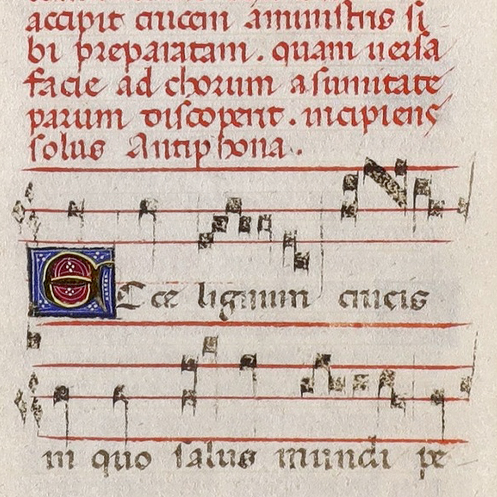 accipit crucem a ministris si
bi preparatam. quam uersa
facie ad chorum a sumitate
parum discoperit. incipiens
solus Antiphona.
ECce lignum crucis
in quo salus mundi pe